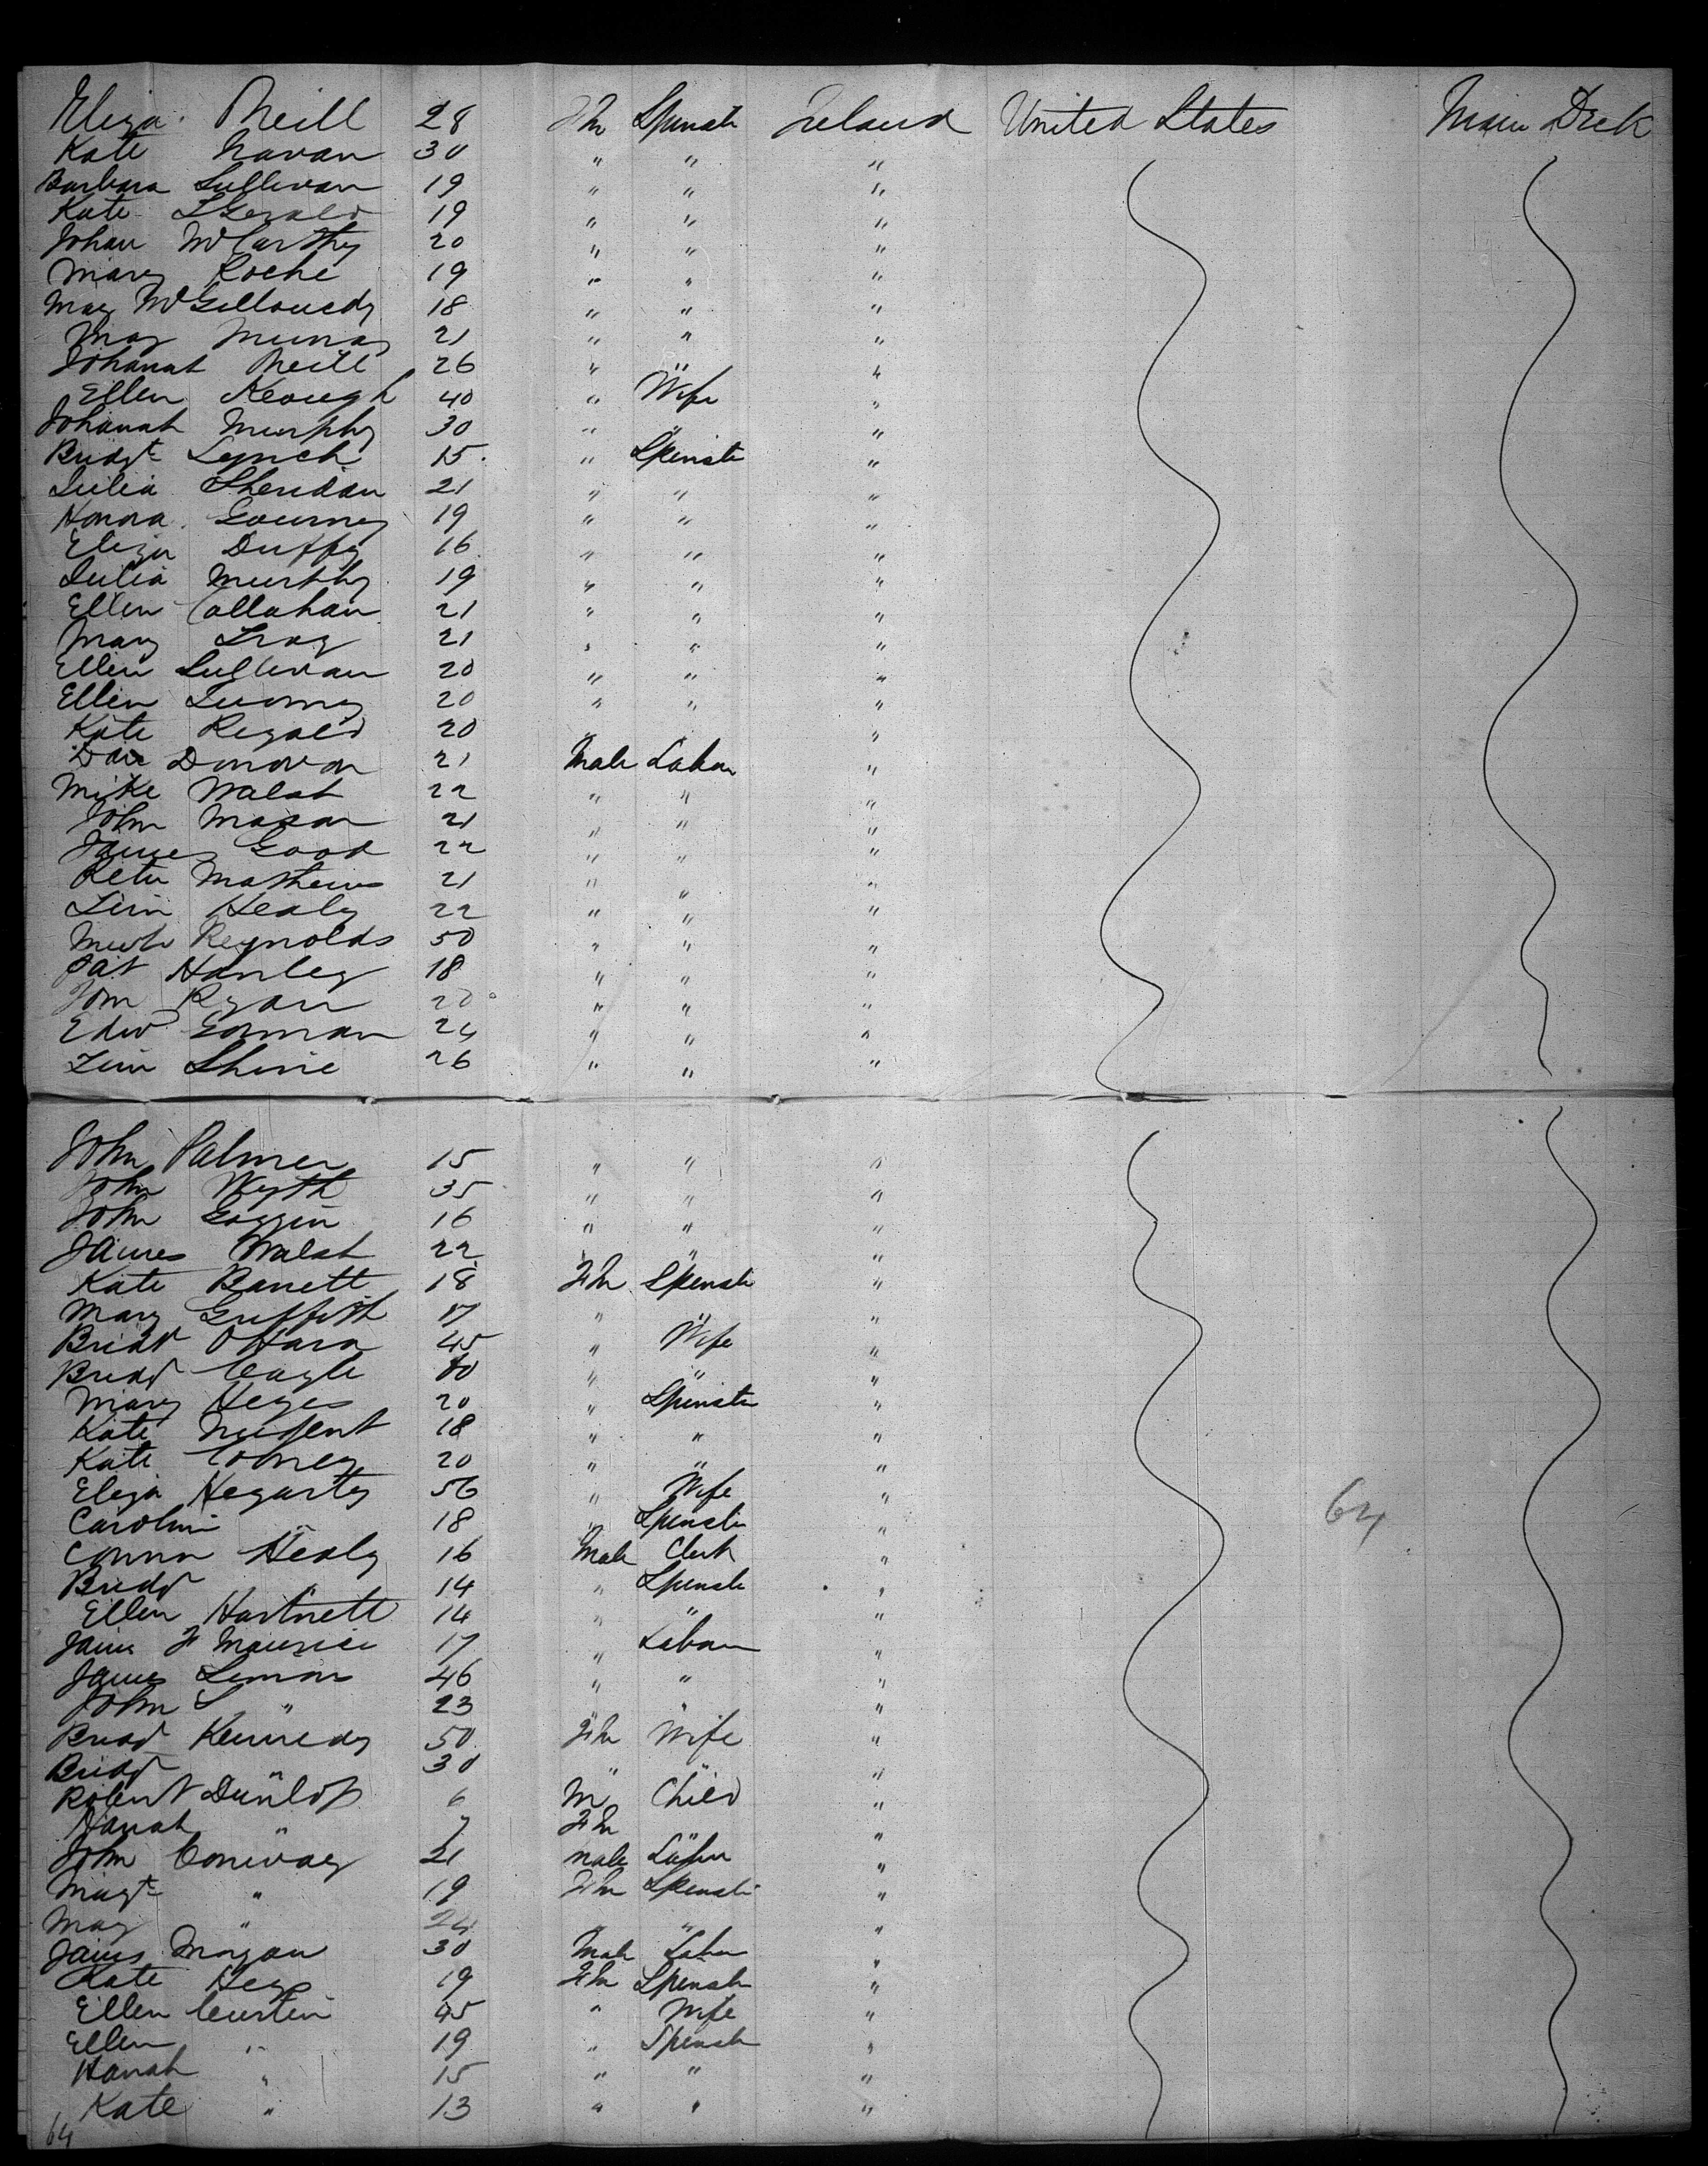 Eliza Neill 28 Fm Spinste Ireland United States Main Deck
Kate Navan 30 " " "
Barbara Sullivan 19 " " "
Kate FGerald 19 " " "
Johan McCarthy 20 " " "
Mary Roche 19 " " "
May McGillouedy 18 " " "
May Murray 21 " " "
Johanah Neill 26 " " "
Ellen Keough 40 " Wife "
Johanah Murphy 30 " " "
Bridgt Lynch 15 " Spinste "
Julia Sheridan 21 " " "
Honora Gourney 19 " " "
Eliza Duffy 16 " " "
Julia Murphy 19 " " "
Ellen Callahan 21 " " "
Mary Tracy 21 " " "
Ellen Sullivan 20 " " "
Ellen Twomey 20 " " "
Kate Regald 20 " " "
Dan Donovan 21 Male Labour "
Mike Walsh 22 " " "
John Mason 21 " " "
James Good 22 " " "
Peter Mathews 21 " " "
Tim Healy 22 " " "
Reynolds 50 " " "
Pat Hanley 18 " " "
Tom Ryan 20 " " "
Edwd Gorman 24 " " "
Tim Shine 26 " " "
John Palmer 15 " " "
John Wyth 35 " " "
John Goggin 16 " " "
James Walsh 22 " " "
Kate Barrett 18 Fm Spinste "
Mary Griffith 17 " " "
Bridt OHara 45 " Wife "
Bridt Cagle " " "
Mary Heyes 20 " Spinste "
Kate Nugent 18 " " "
Kate Comey 20 " " "
Eliza Hegarty 56 " Wife "
Caroline " 18 " Spinste " 64
Connor Healy 16 Male Clerk "
Bridt " 14 " Spinste "
Ellen Hartnett 14 " " "
James F Maurice 17 " Labour "
James Lemons 46 " " "
John S " 23 " " "
Bridt Kennedy 50 Fm Wife "
Bridt " 30 " " "
Robert Dunlop 6 M Child "
Hanah " 7 Fm " "
John Conway 21 male Labur "
Magt " 19 Fm Spinste "
May " 24 " " "
James Morgan 30 Male Labur "
Kate Heys 19 Fm Spinste "
Ellen Curtin 45 " Wife "
Ellen " 19 " Spinste "
Hanah " 15 " " "
Kate " 13 " " "
64